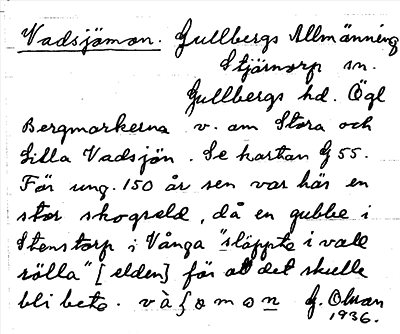 Vadsjömon. Gullbergs Allmänning
Stjärnorp sn.
Gullbergs hd. Ögl
Bergmarkerna v. om Stora och
Lilla Vadsjön. Se kartan G 55.
För ung. 150 år sen var här en
stor skogseld, då en gubbe i
Stenstorp i Vånga "släppte i vall
rölla" [elden] för att det skulle
bli bete. G. Olman
1936.